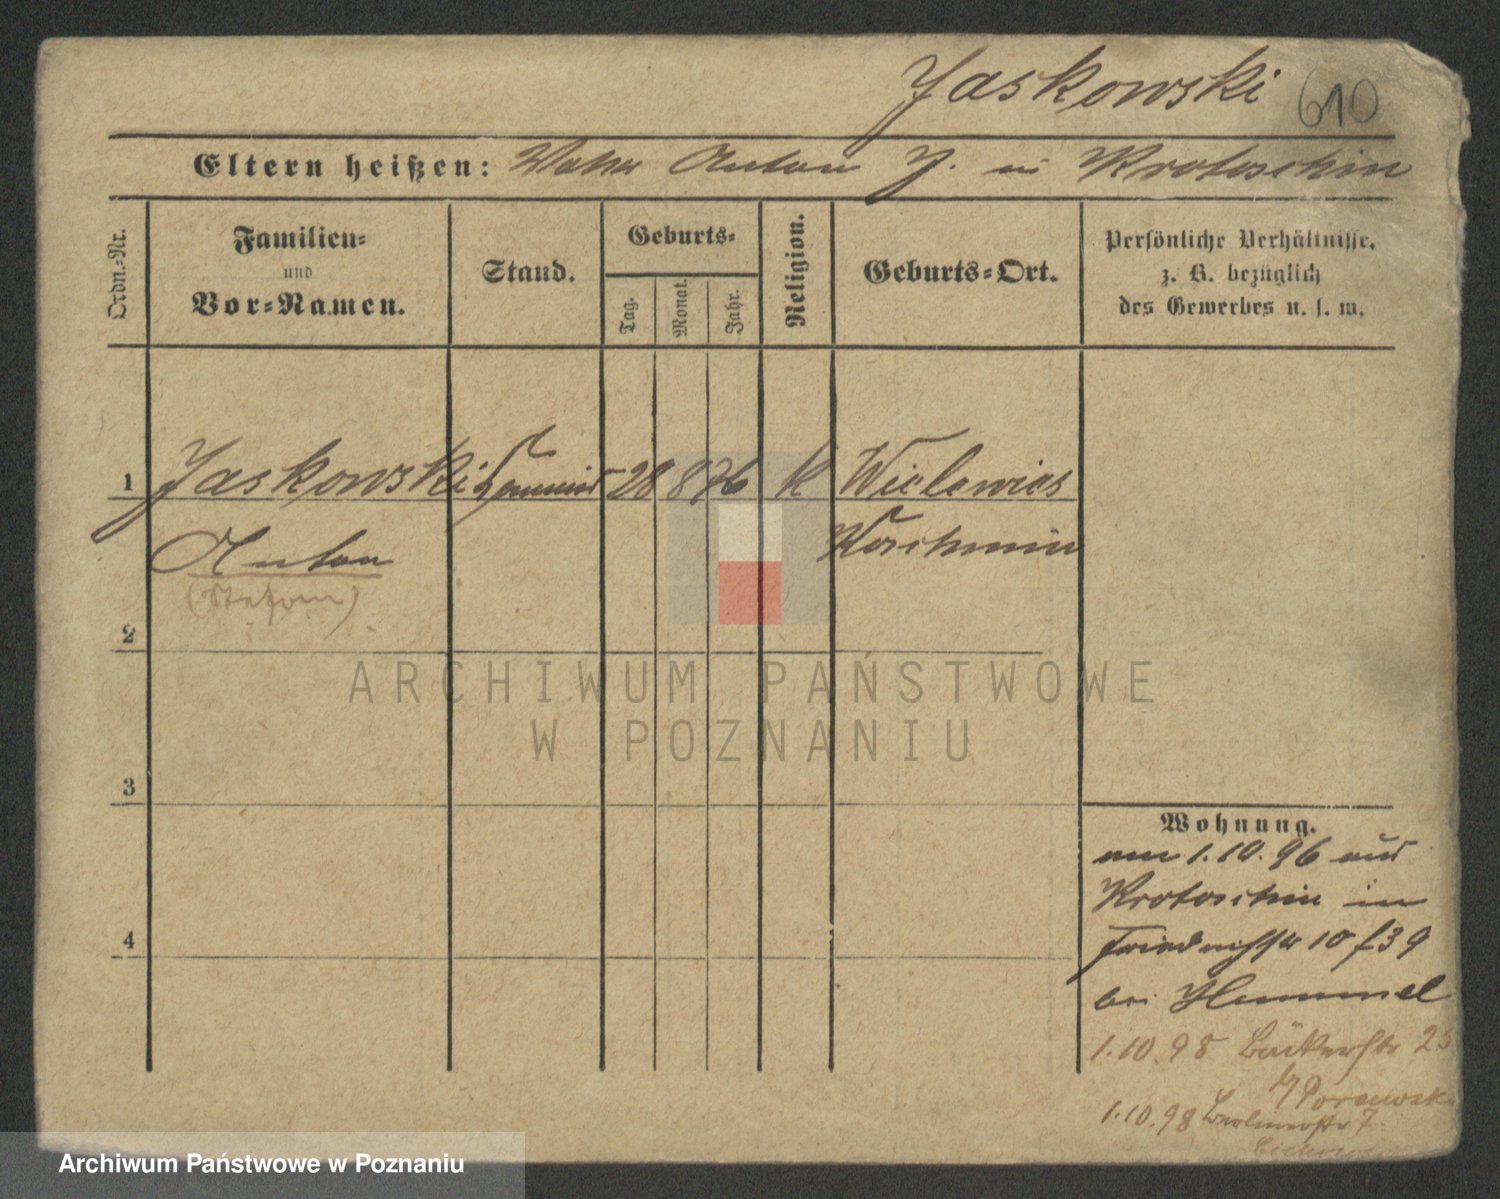 Jaskowski 610
Eltern heißen: Vater Anton J. in Krotoschin
Ordn.-Nr.
Familien-
und
Vor-Namen.
Stand.
Geburts-
Tag.
Monat.
Jahr.
Religion.
Geburts-Ort.
Persönliche Verhältnisse,
z. B. bezüglich
des Gewerbes u. s. w.
1 Jaskowski 28 8 76 k
Koschmin
Anton
(Stefan)
2
ARCHIWUM PAŃSTWOWE
W POZNANIU
3
Wohnung.
am 1.10.96 aus
Krotoschin in
Friedrichstr 10
bei Hummel
1.10.98 Bäckerstr
1.10.98 Berlinerstr 7
4
Archiwum Państwowe w Poznaniu